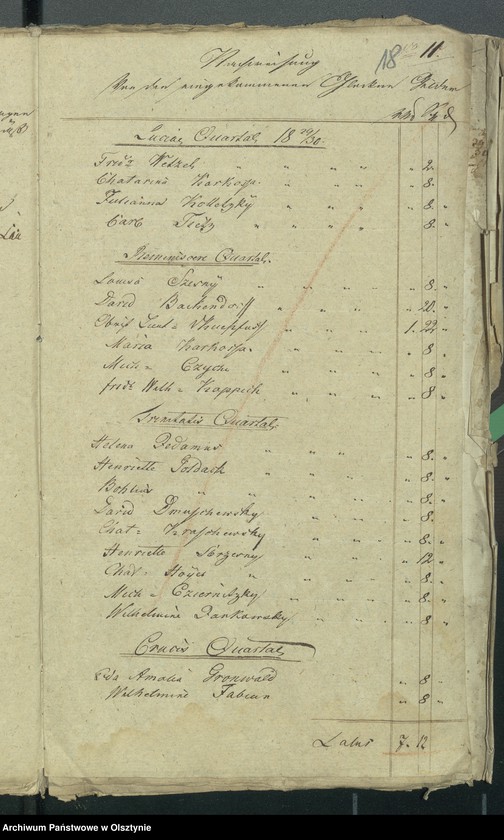 18 11.
Nachweisung
Von den eingekommenen Glocken Geldern
Luciae Quartal 18 29/30.
Friedr. Wetzel " " " " 2. "
Chatarina Karkossa " " " " 8. "
Julianna Kolletzky " " " " 8. "
Carl " " " " 8. "
Reminiscere Quartal.
Louise Szesny " " " " 8. "
David Backendorff " " " " 20. "
1. 22 "
Maria Karkossa " " " " 8 "
Mich: Czych " " " " 8. "
Friedr. Wilh: Kappich " " " " 8 "
Trinitatis Quartal
Helena Dedamus " " " " 8. "
Henriette Goldack " " " " 8. "
" " 8. "
David Dmuschewsky " " " " 8. "
Chat: Kraschewsky " " " " 8. "
Henriette " " " " 12 "
Chat: " " " " 8. "
Mich: Czernitzky " " " " 8. "
Wilhelmine Dankowsky " " " " 8 "
Crucis Quartal
Ida Amalia Gronwald " 8 "
Wilhelmine Fabian " 8 "
Latus 7. 12
Archiwum Państwowe w Olsztynie